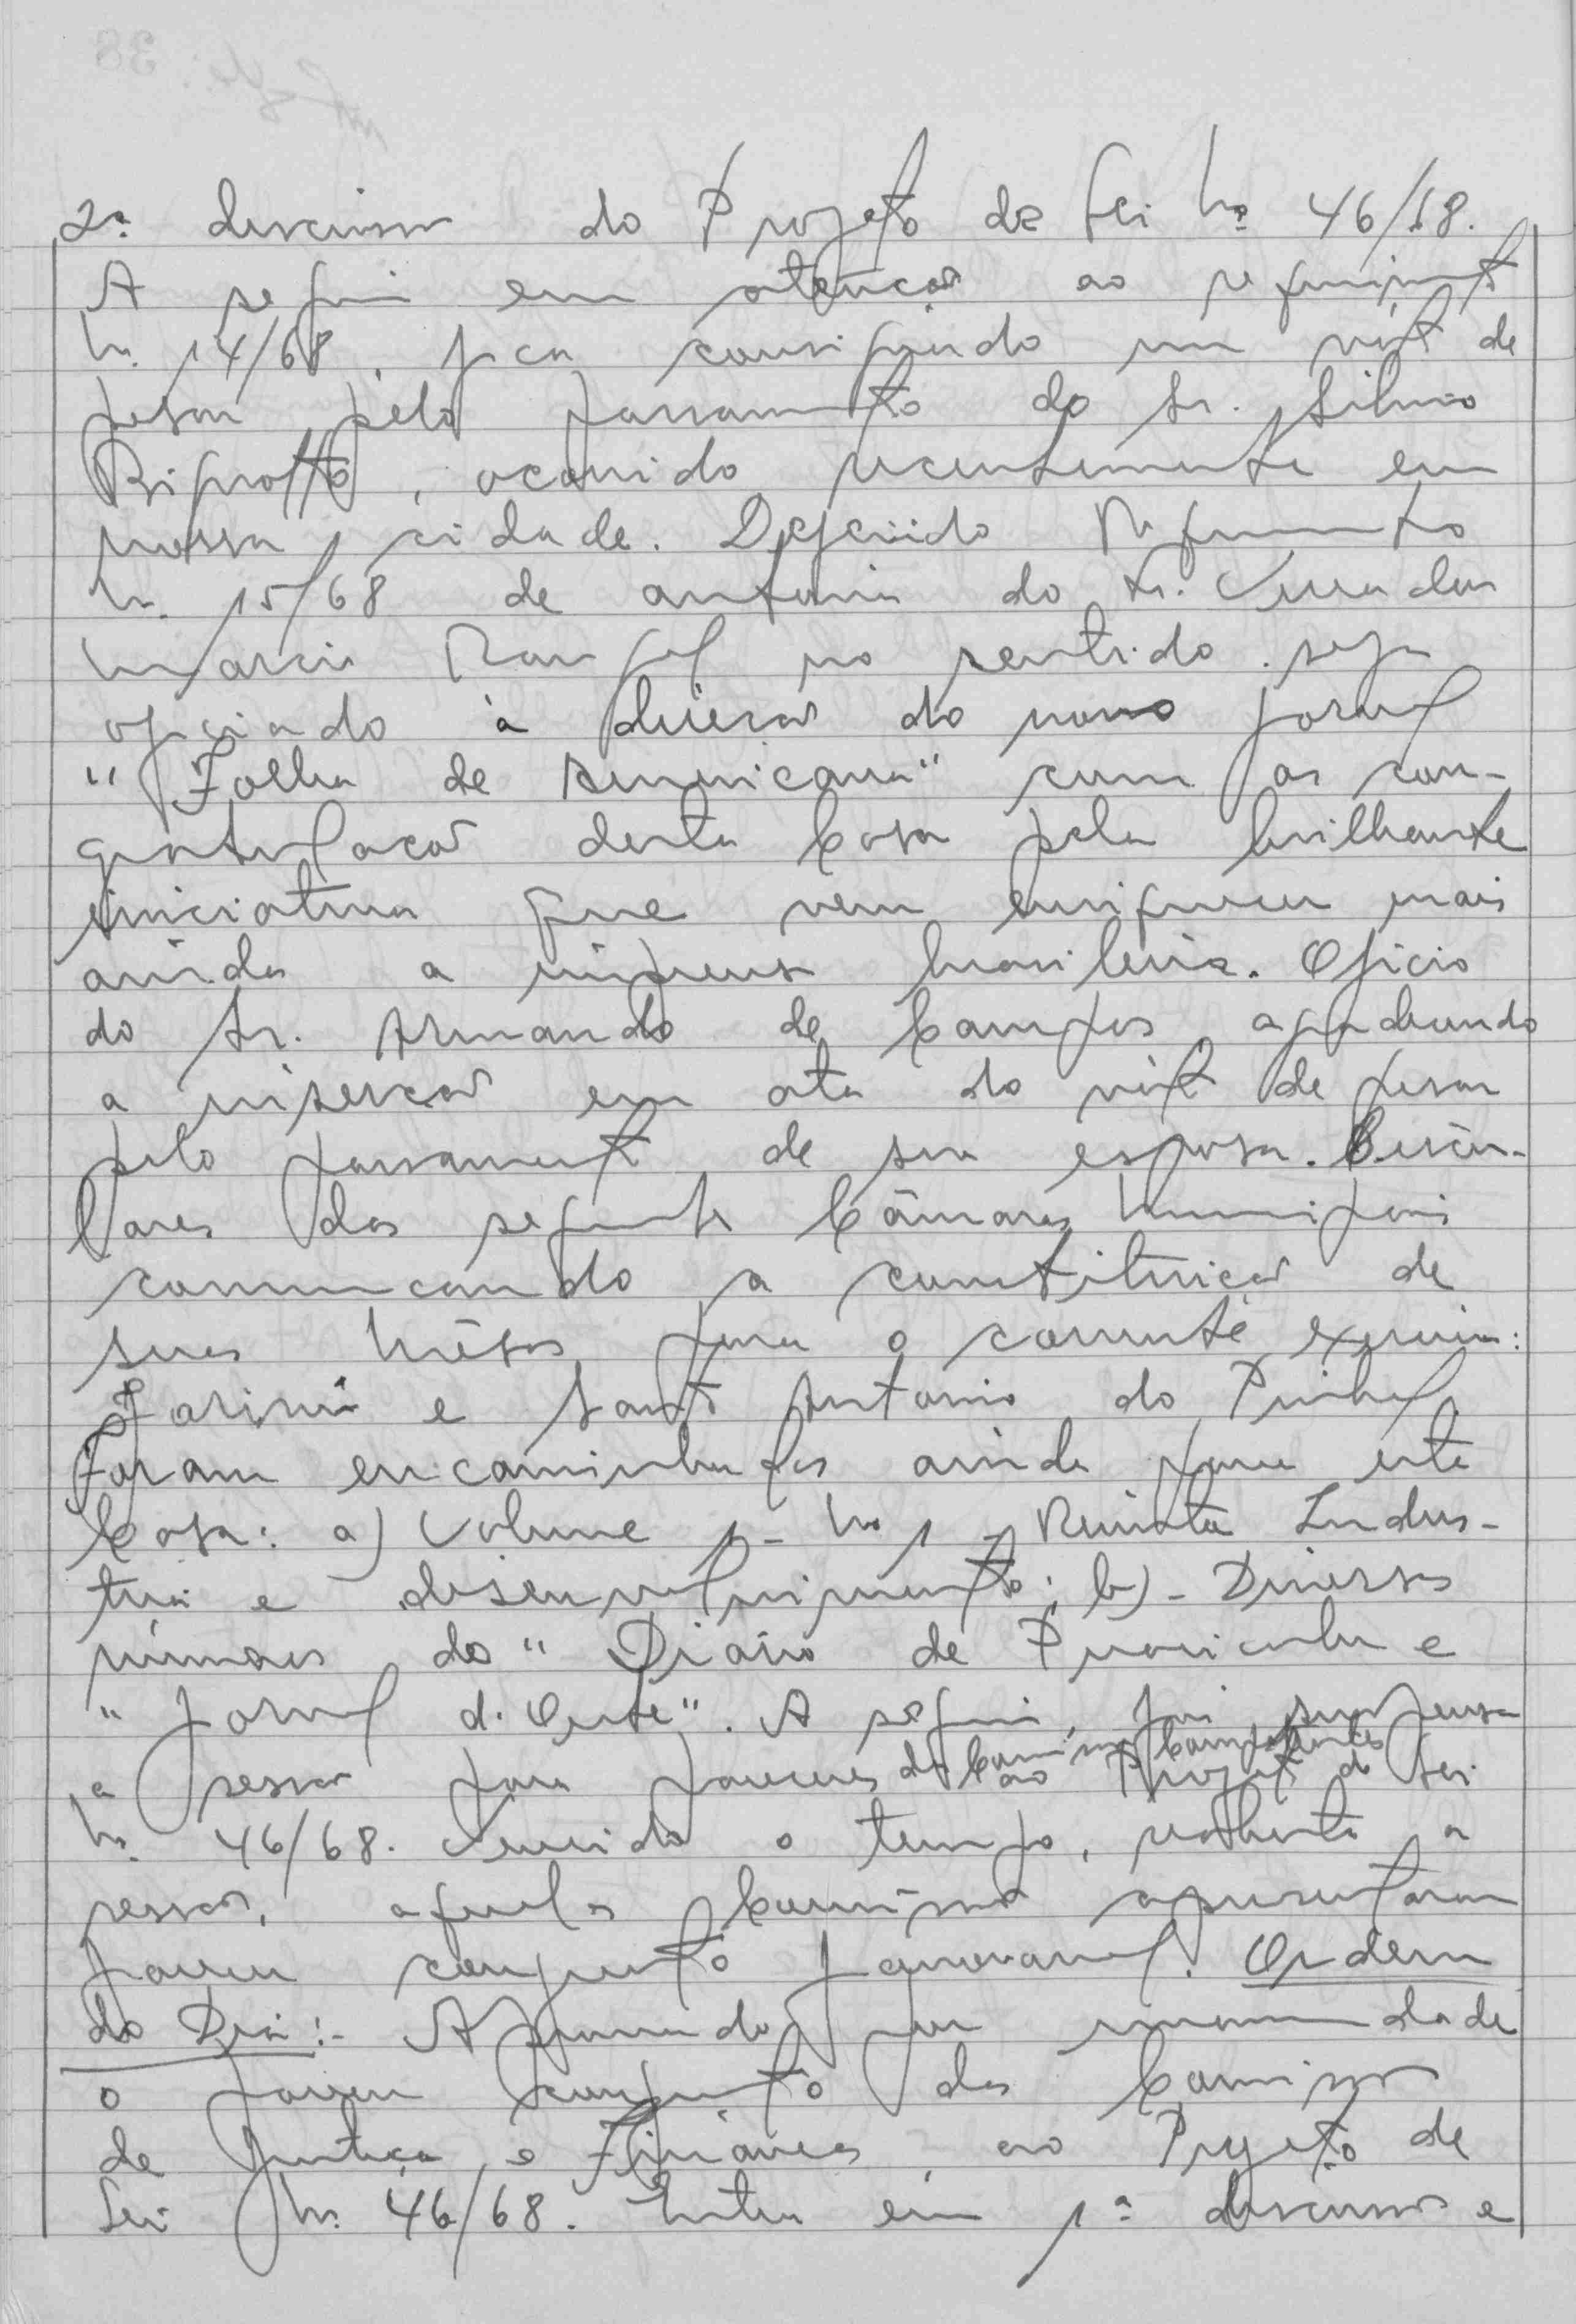 2ª discussão do Projeto de Lei nº 46/68.
A seguir em atenção ao requerimento
nº 14/68, fica consignado um voto de
pesar pelo passamento do Sr. Silvio
ocorrido recentemente em
nossa cidade. Deferido Requerimento
nº 15/68 de autoria do Sr. Vereador
Marcio Rangel no sentido seja
oficiado à direção do novo jornal
"Folha de Americana" com as con-
gratulação desta Casa pela brilhante
iniciativa que vem enriquecer mais
ainda a imprensa brasileira. Oficio
do Sr. Armando de Campos agradecendo
a inserção em ata do voto de pesar
pelo passamento de sua esposa. Circu-
lares das seguinte Câmaras Municipais
comunicando a constituição de
suas mêsas para o corrente exercicio:
e Santo Antonio do Pinhal.
Foram encaminhados ainda para esta
Casa: a) Volume 1 - nº 1 - Revista Indus-
tria e desenvolvimento; b) - Diversos
números do "Diário de Piracicaba e
"Jornal d'Oeste". A seguir, foi suspensa
a sessão para pareceres da Comissão Competentes ao Projeto de Lei
nº 46/68. Vencido o tempo, reaberta a
sessão, aquelas Comissão apresentaram
parecer conjunto favoravel. Ordem
do Dia:- Aprovado por unanimidade
o parecer conjunto das Comissão
de Justiça e Finanças, ao Projeto de
Lei nº 46/68. Entra em 1ª discussão e